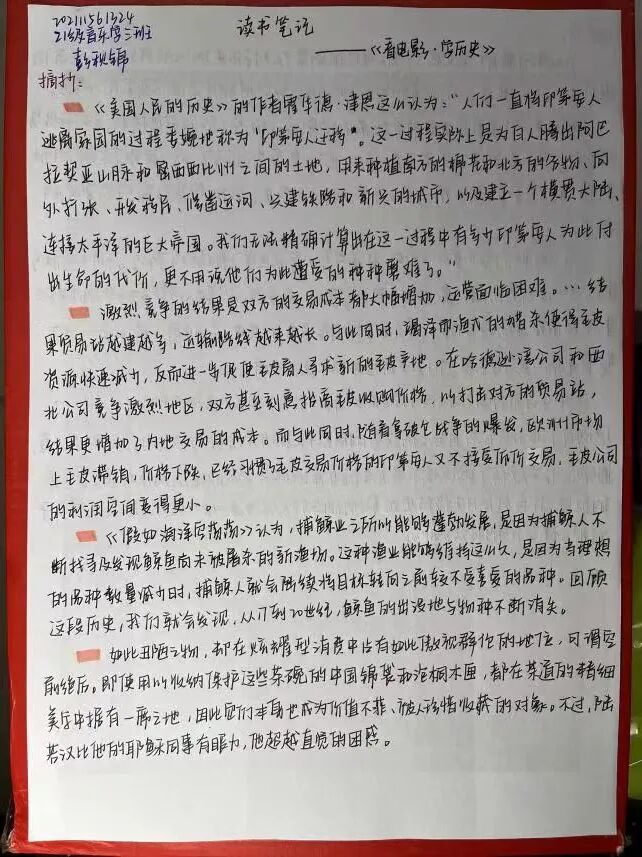 20211561324
21级音乐学三班
彭秋锦
读书笔记
——《看电影·学历史》
摘抄：
《美国人民的历史》的作者霍华德·津恩这么认为："人们一直将印第安人
逃离家园的过程委婉地称为"印第安人迁移"。这一过程实际上是为白人腾出阿巴
拉契亚山脉和密西西比州之间的土地，用来种植南方的棉花和北方的谷物、向
外扩张、开发移民、修凿运河、兴建铁路和新兴的城市，以及建立一个横贯大陆、
连接太平洋的巨大帝国。我们无法精确计算出在这一过程中有多少印第安人为此付
出生命的代价，更不用说他们为此遭受的种种磨难了。"
激烈竞争的结果是双方的交易成本都大幅增加，运营面临困难。…结
果贸易站越建越多，运输路线越来越长。与此同时，竭泽而渔式的猎杀使得毛皮
资源快速减少，反而进一步促使毛皮商人寻求新的毛皮产地。在哈德逊湾公司和西
北公司竞争激烈地区，双方甚至刻意抬高毛皮收购价格，以打击对方的贸易站，
结果更增加了内地交易的成本。而与此同时，随着拿破仑战争的爆发，欧洲市场
上毛皮滞销，价格下跌，已经习惯了毛皮交易价格的印第安人又不接受低价交易，毛皮公司
的利润空间变得更小。
《假如海洋空荡荡》认为，捕鲸业之所以能够蓬勃发展，是因为捕鲸人不
断找寻及发现鲸鱼尚未被屠杀的新渔场。这种渔业能够维持这么久，是因为当理想
的品种数量减少时，捕鲸人就会陆续将目标转向之前较不受喜爱的品种。回顾
这段历史，我们就会发现，从17到20世纪，鲸鱼的出没地与物种不断消失。
如此丑陋之物，却在炫耀型消费中占有如此傲视群伦的地位，可谓空
前绝后。即使用以收纳保护这些茶碗的中国锦袋和泡桐木匣，都在茶道的精细
美学中据有一席之地，因此它们本身也成为价值不菲、被人珍惜收藏的对象。不过，陆
若汉比他的耶稣同事有眼力，他超越直觉的困惑。